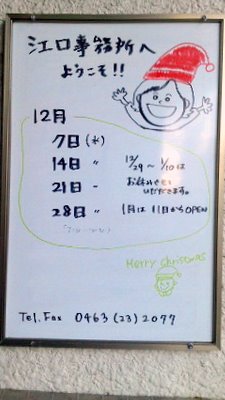 江口事務所へ
ようこそ!!
12月
7日(水)
14日 〃 12/29〜1/10は
21日 〃 お休みとさせていただきます。
28日 〃 1月は11日からOPEN
Merry Christmas
Tel, Fax 0463(23)2077